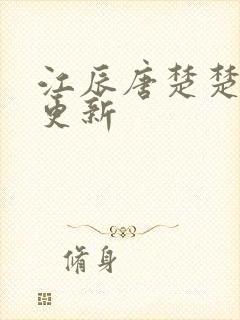 江辰唐楚楚
更新
脩身